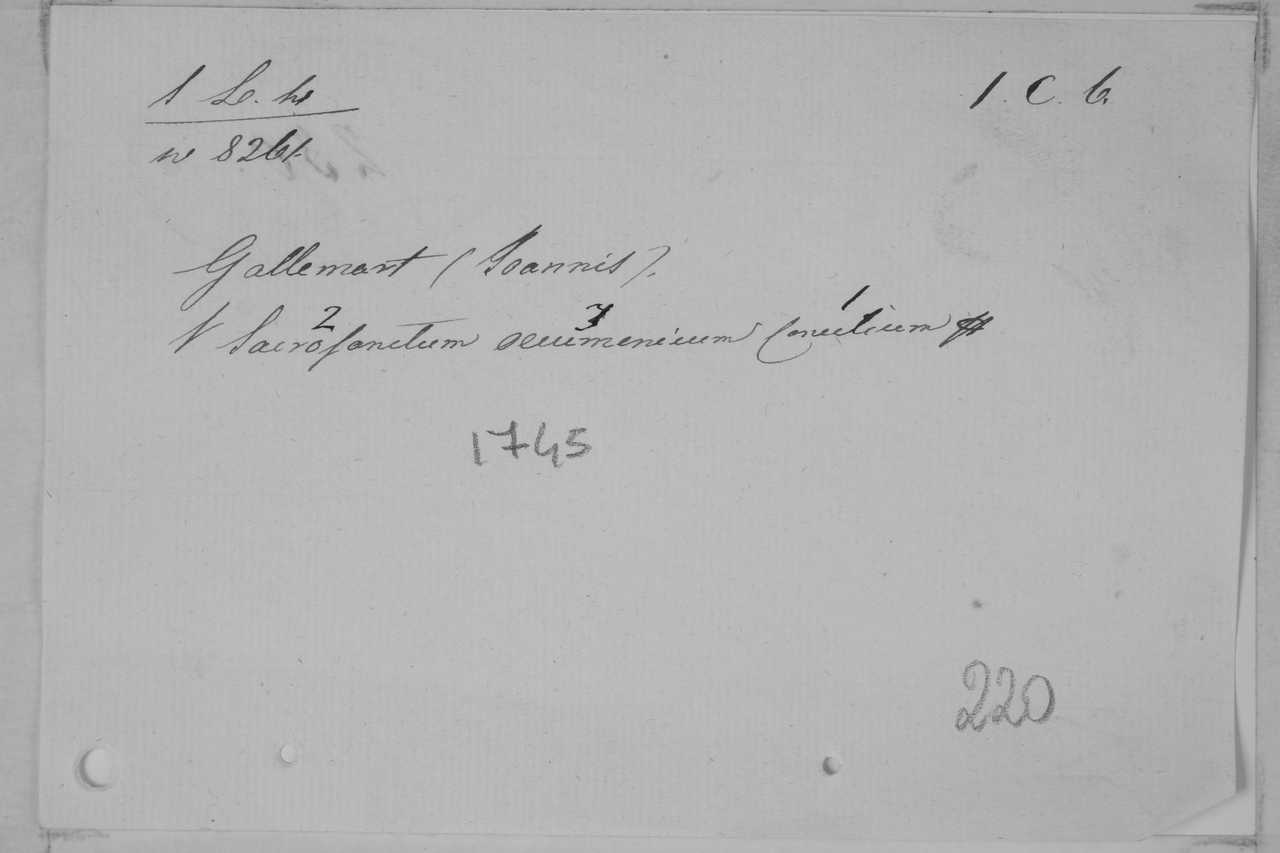 1 L. w
1. C. 6.
w 8261.
Gallemart (Joannis).
2 3 1
Sacrosanctum oecumenicum Concilium
1745
220